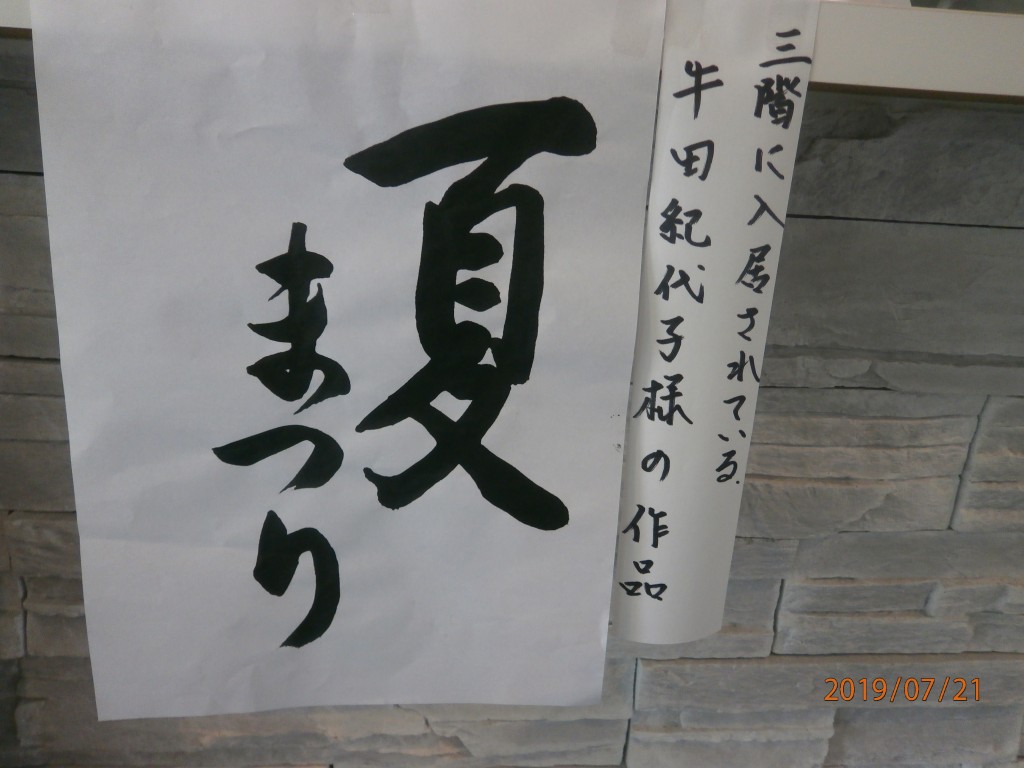 夏
まつり
三階に入居されている
牛田紀代子様の作品
2019/07/21